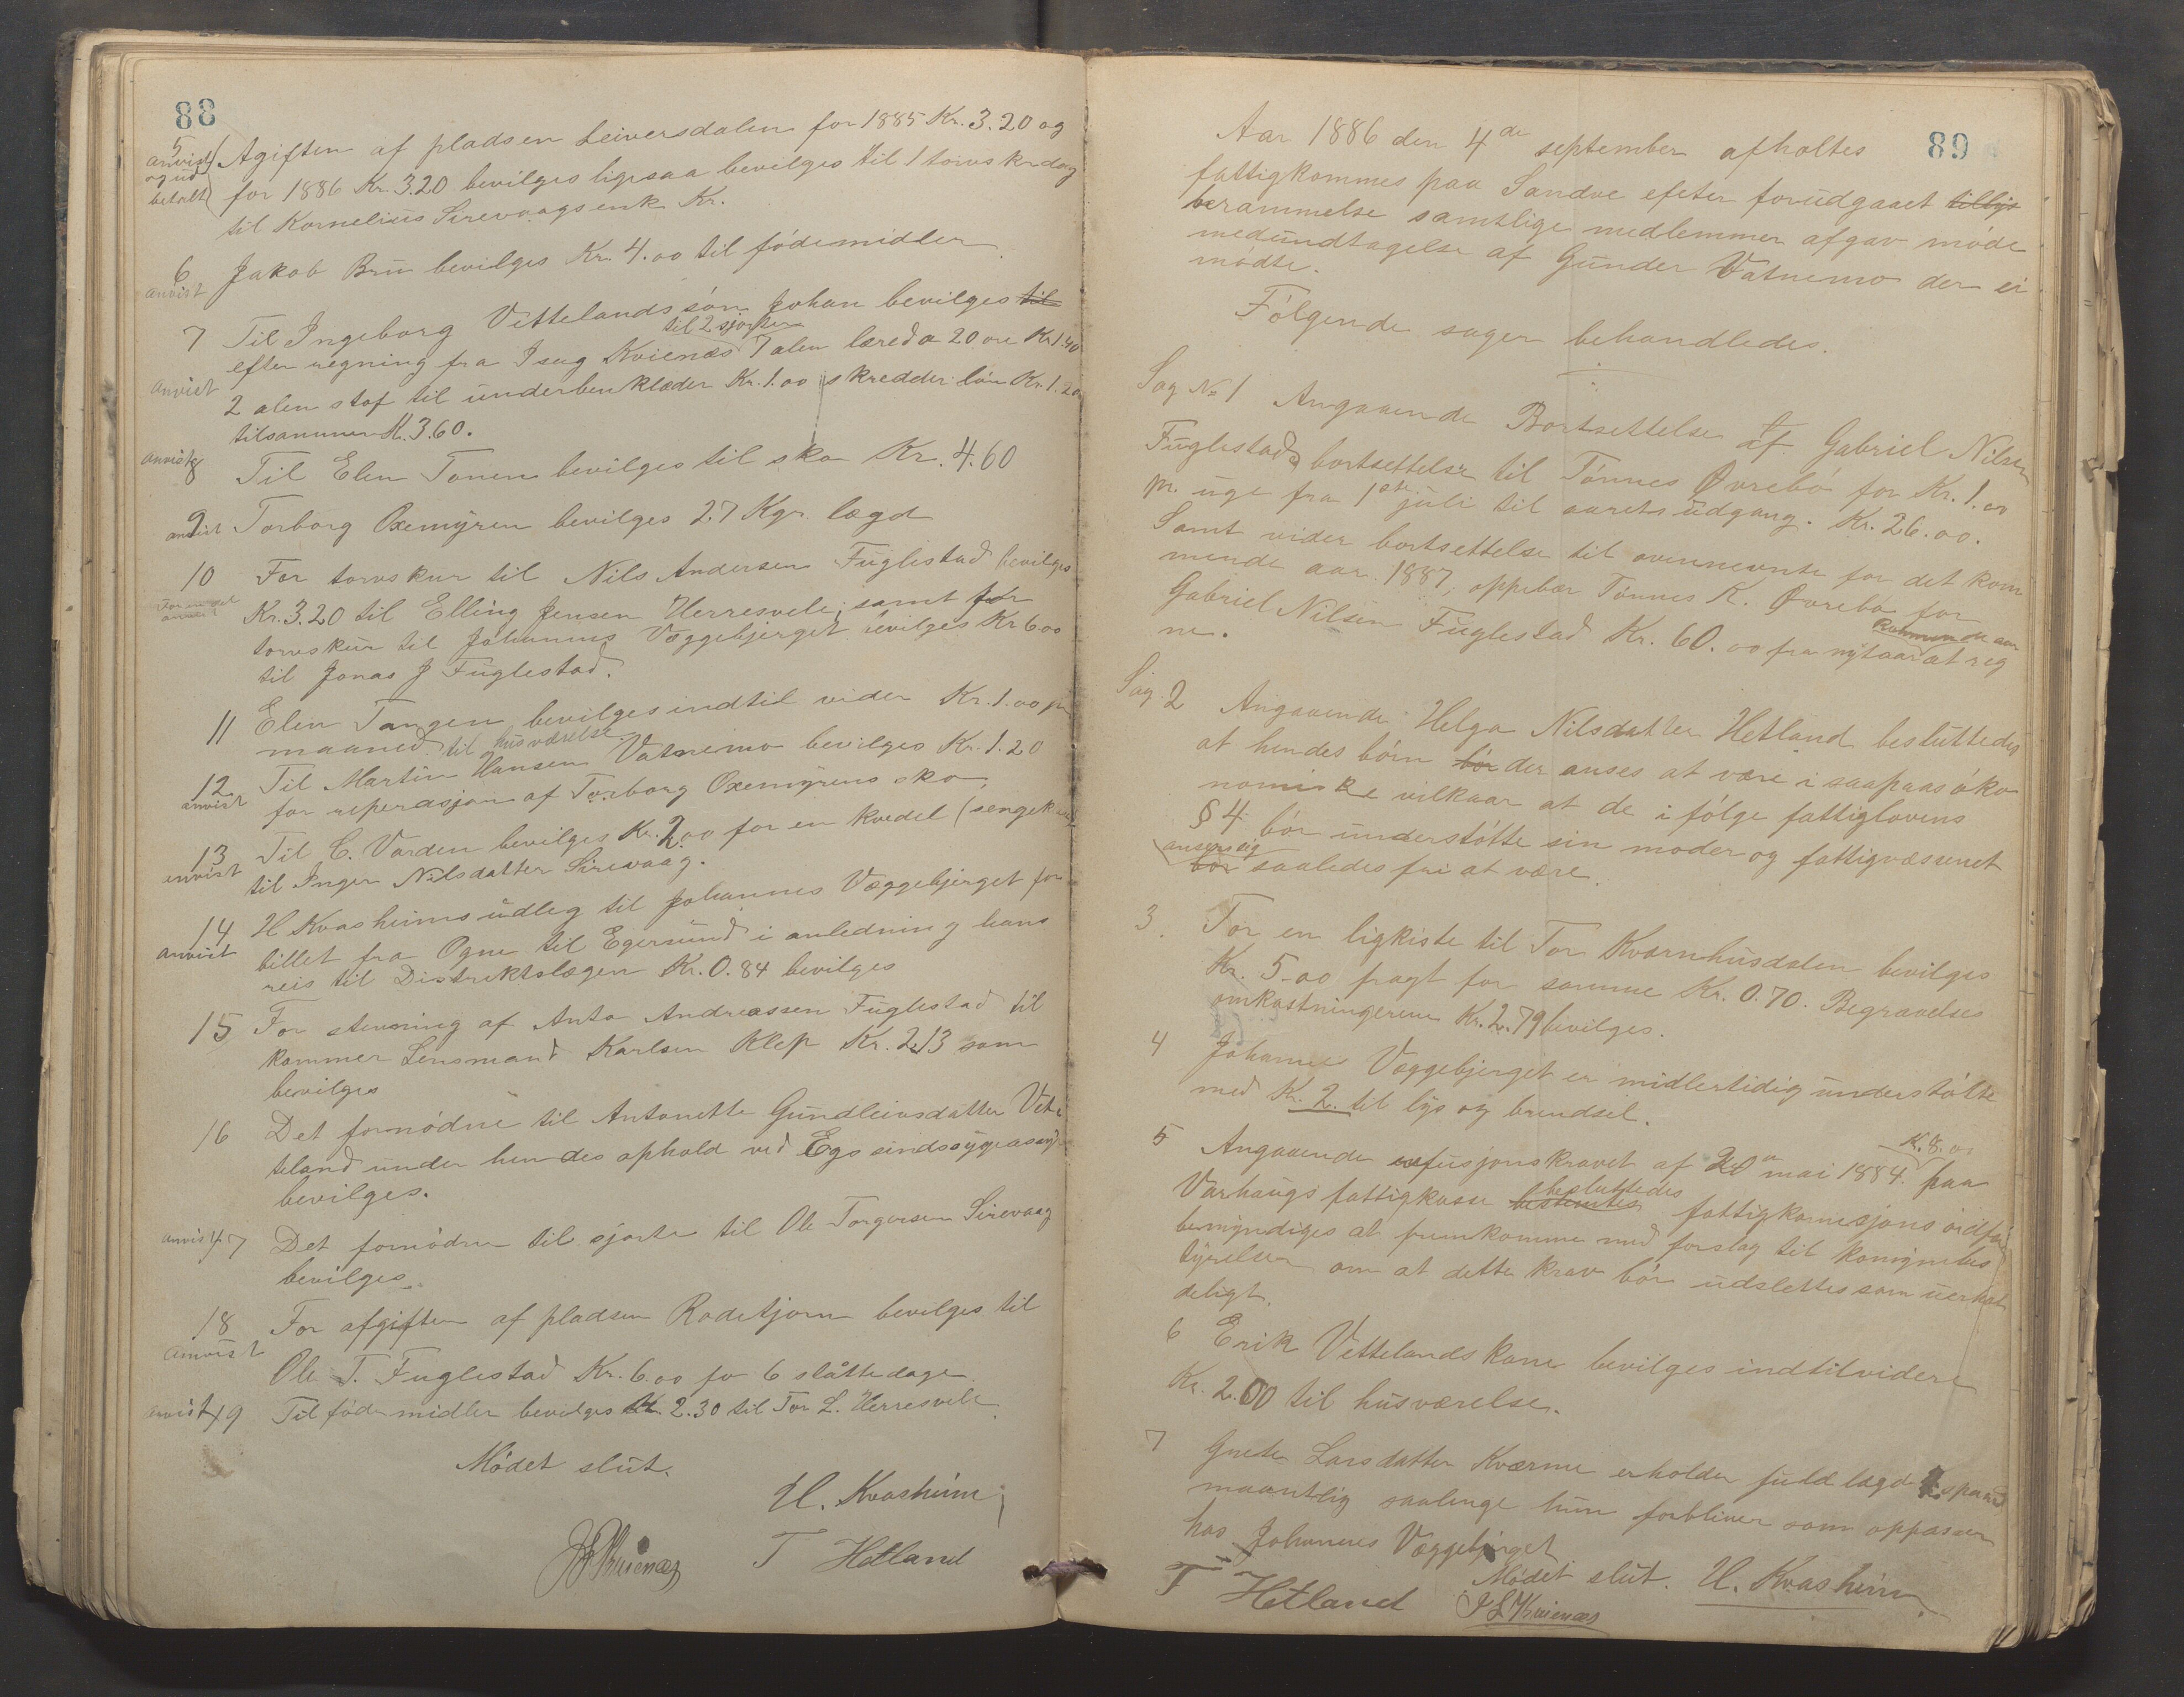 88
5 Afgiften af pladsen Leiversdalen for 1885 Kr. 3.20 og
anvist og udbetalt for 1886 Kr. 3.20 bevilges ligesaa bevilges til 1 torvskurdag
til Kornelius Sirevaags enk Kr.
6 Jakob Bru bevilges Kr. 4.00 til fødemidler
anvist
7 Til Ingeborg Vettelands søn Johan bevilges til
til 2 sjorter
efter regning fra Isag Kvienæs 7 alen læred a 20 øre Kr 1.40
anvist 2 alen stof til underbenklæder Kr. 1.00 skredder løn Kr. 1.20
tilsammen K. 3.60.
anvist 8 Til Elen Tonen bevilges til sko Kr. 4.60
9 anvist Torborg Oxemyren bevilges 27 Kgr. lægd
10 For torvskur til Nils Andersen Fuglestad bevilges
Kr. 3.20 til Elling Jensen Herresvele; samt for
torvskur til Johannes Væggebjerget bevilges Kr 6.00
til Jonas J Fuglestad.
11 Elen Tangen bevilges indtil vider Kr. 1.00 pr
maaned til husværelse.
12 Til Martin Hansen Vatnemo bevilges Kr. 1.20
anvist for reperasjon af Torborg Oxemyrens sko
13 Til C. Varden bevilges Kr. 2.00 for en kvedel (sengeklæ
anvist til Inger Nilsdatter Sirevaag.
14 H Kvasheims udleg til Johannes Væggebjerget for
anvist billet fra Ogne til Egersund i anledning hans
reis til Distriktslægen Kr. 0.84 bevilges
15 For stevning af Anta Andreassen Fuglestad til
kommer Lensmand Karlsen Klep Kr. 2.13 som
bevilges
16 Det fornødne til Antonette Gundleivsdatter Vet
teland under hendes ophold ved Egs sindssygeasyl
bevilges.
anvist 17 Det fornødne til sjorte til Ole Torgersen Sirevaag
bevilges.
18 For afgiften af pladsen Rodetjorn bevilges til
anvist
Ole T. Fuglestad Kr. 6.00 for 6 slåttedage
anvist 19 Til fødemidler bevilges Kr. 2.30 til Tor L. Herresvele.
Mødet slut.
H. Kvasheim
T Hetland
89
Aar 1886 den 4de september afholtes
fattigkommes paa Sandve efeter forudgaaet tillys
berammelse samtlige medlemmer afgav møde
medundtagelse af Gunder Vatnemo der ei
mødte.
Følgende sager behandledes.
Sag No 1 Angaaende Bortsettelse af Gabriel Nilsen
Fuglestads bortsettelse til Tønnes Øvrebø for Kr. 1.00
pr. uge fra 1ste juli til aarets udgang. Kr. 26.00.
Samt vider bortsettelse til ovennevnte for det kom
mende aar 1887, oppebær Tønnes K. Øvrebø for
Gabriel Nilsen Fuglestad Kr. 60.00 fra nytaar at reg
ne.
Sag 2 Angaaende Helga Nilsdatter Hetland besluttedes
at hendes børn bør der anses at være i saapaas øko
nomiske vilkaar at de i følge fattiglovens
§ 4 bør understøtte sin moder og fattigvæssenet
anser sig
bør saaledes fri at være.
3. For en ligkiste til Tor Kvarnhusdalen bevilges
Kr. 5.00 fragt for samme Kr. 0.70. Begravelses
omkostningerne Kr. 2.79 bevilges.
4 Johannes Væggebjerget er midlertidig understøtte
med Kr. 2. til lys og brendsel.
K. 8.00
5 Angaaende refusjonskravet af 20 mai 1884. paa
besluttedes
Varhaugs fattigkasse bestemtes fattigkomesjons ordfør
bemyndiges at fremkomme med forslag til komynebes
tyrelsen om at dette krav bør udslettes som uerhol
deligt.
6 Erik Vettelands kone bevilges indtilvidere
Kr. 2.00 til husværelse.
7 Grete Larsdatter Kværme erholder fuld lægd
maantlig saalenge hun forbliver som oppasser
hos Johannes Væggebjerget
Mødet slut. H. Kvasheim
T Hetland